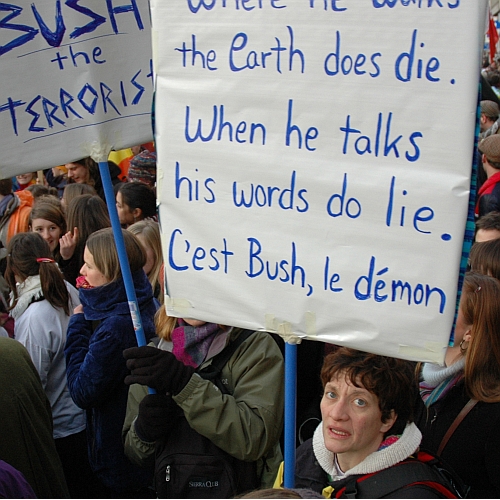 BUSH
the
TERRORIST
Where he walks
the Earth does die.
When he talks
his words do lie.
C'est Bush, le démon